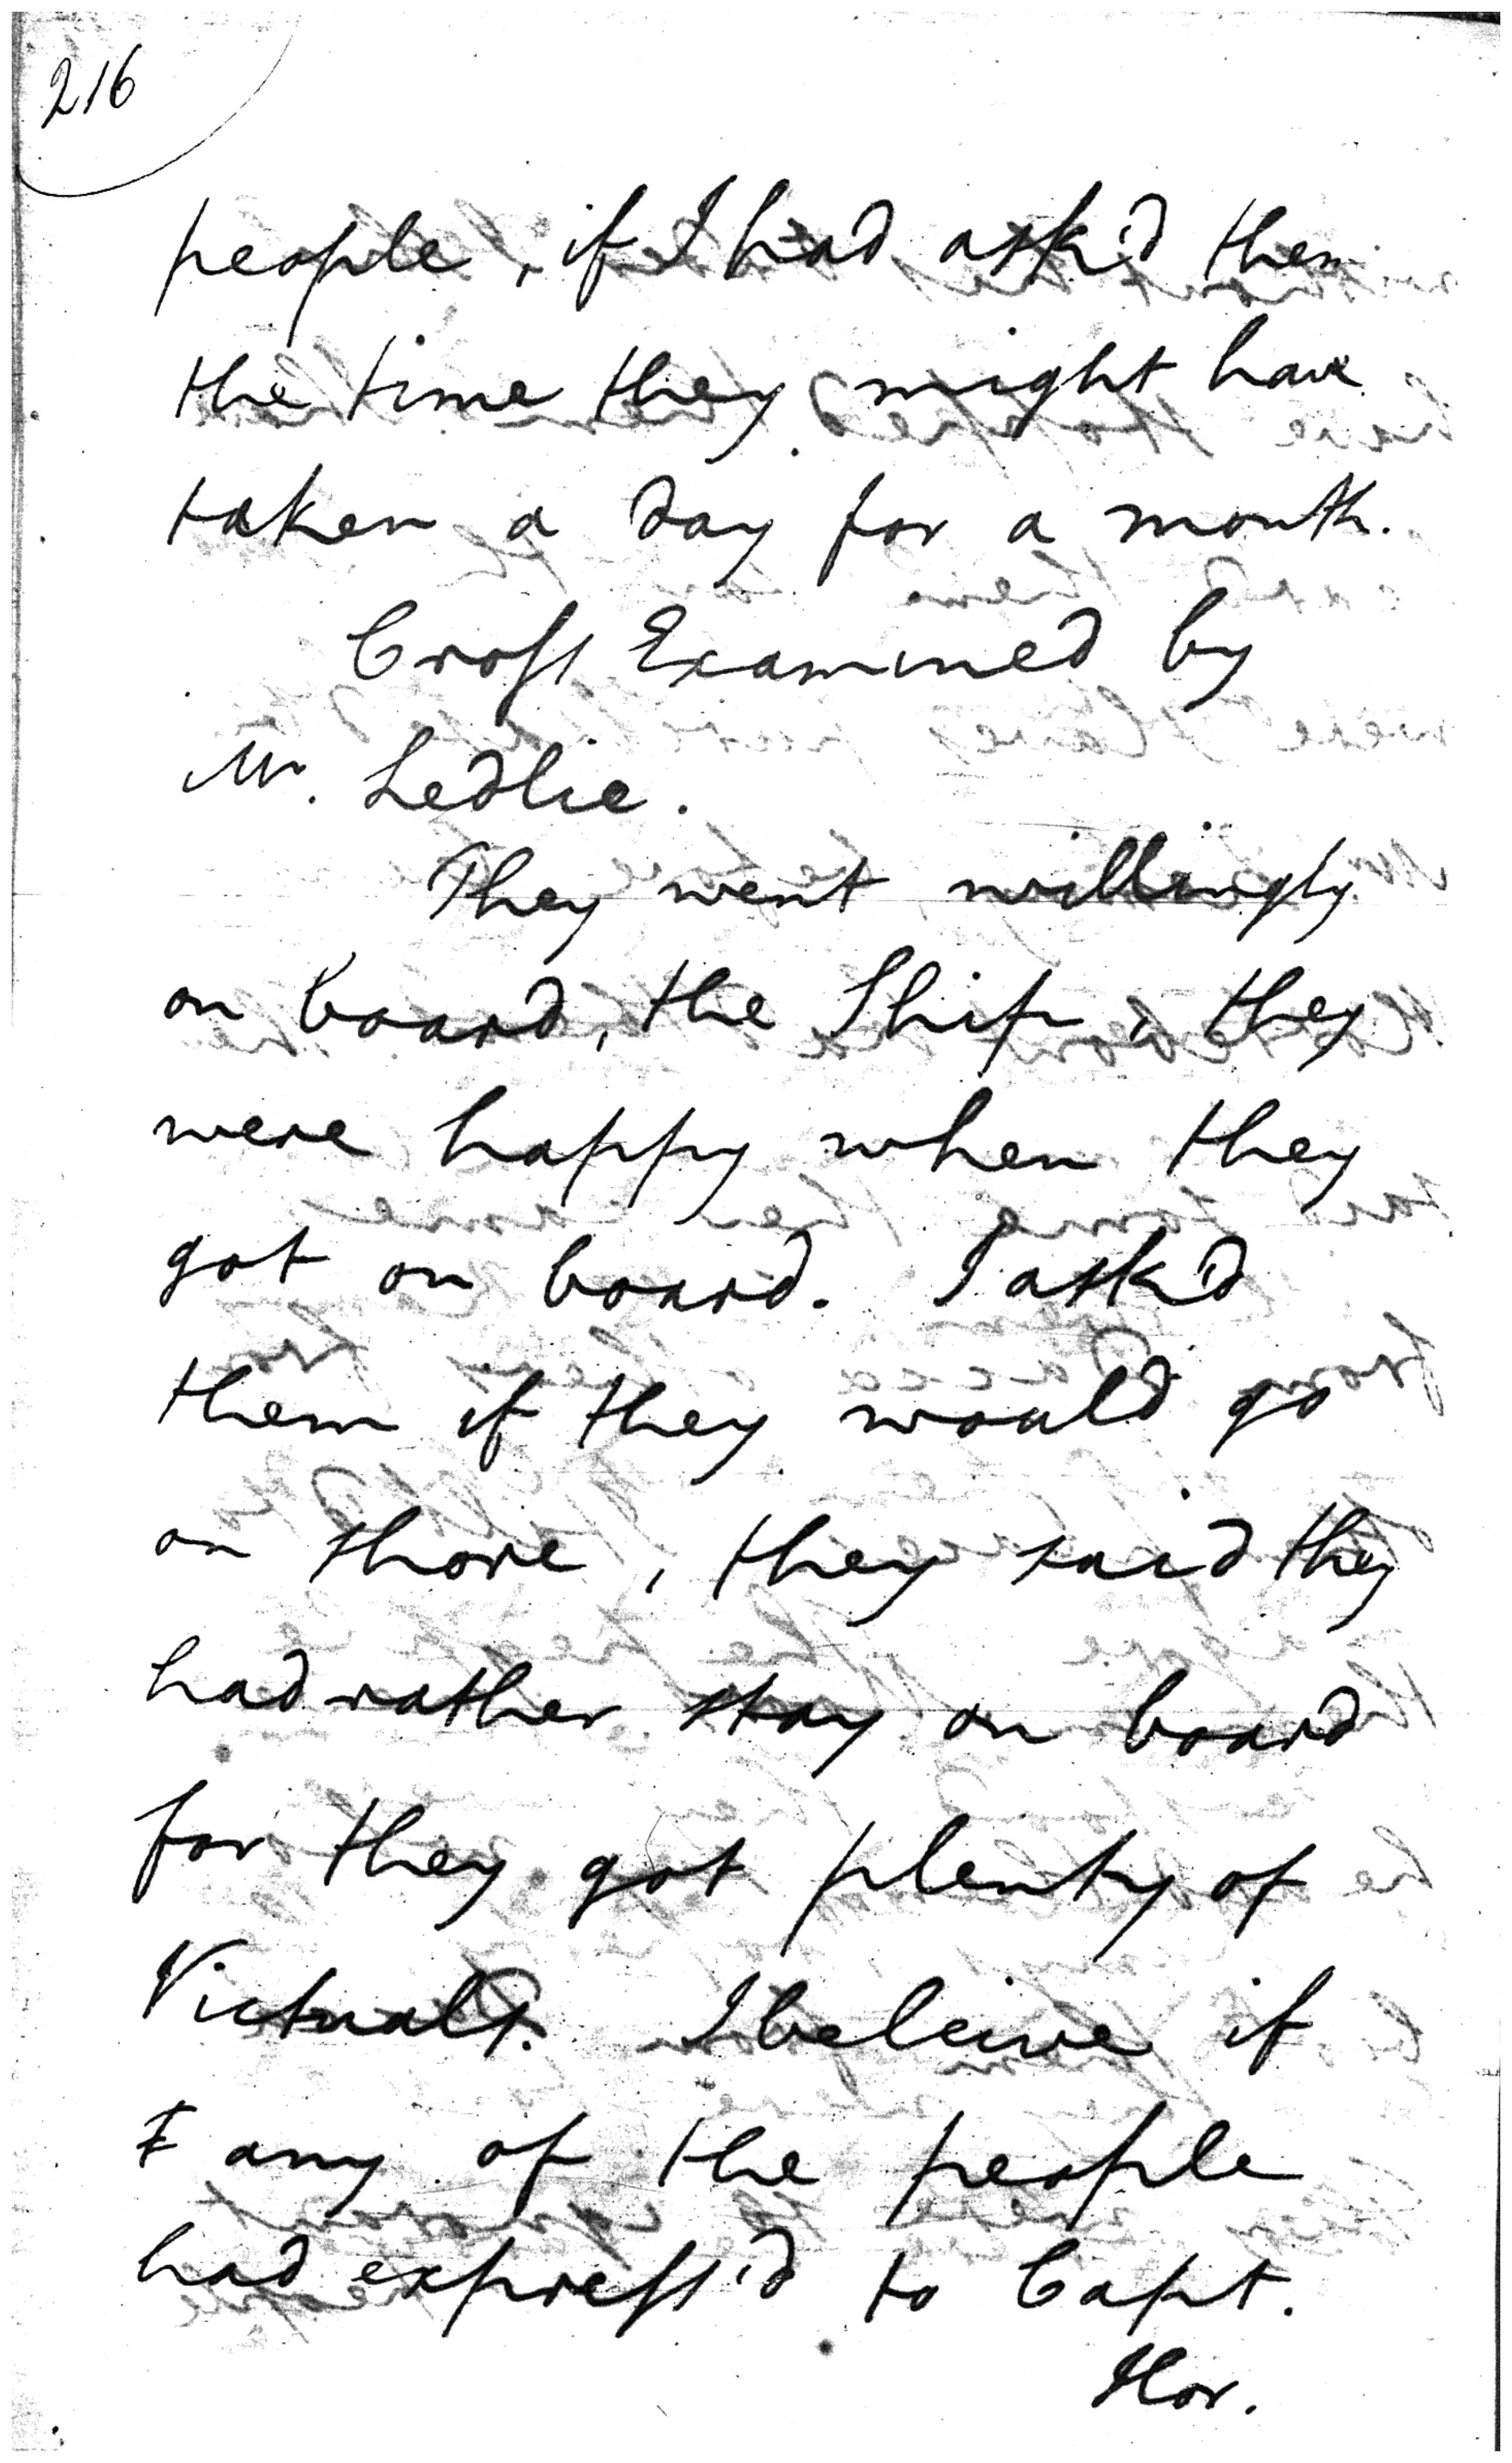 216
people, if I had ask'd them
the time they might have
taken a day for a month.
Cross Examined by
Mr. Ledlie.
They went willingly
on board, the Ship, they
were happy when they
got on board. I ask'd
them if they would go
on shore, they said they
had rather stay on board
for they got plenty of
Victuals. I beleive if
I any of the people
had express'd to Capt.
Hor.